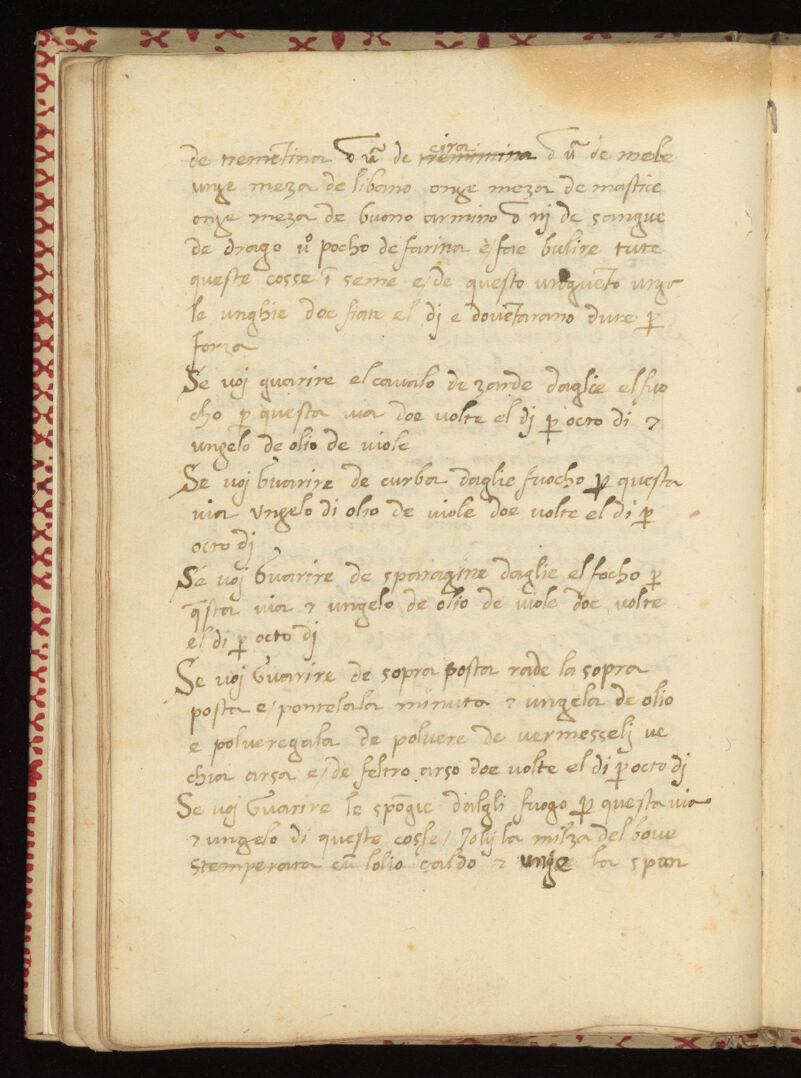 de trementina ʒ ūa de cira ʒ ūa de mele
unze meza de libano onze meza de mastice
onze meza de buono armino ʒ iij de sangue
de drago uº pocho de farina è fae bulire tute
queste cosse ī seme e/ de questo unguēto unze
le unghie doe fiate el dj e dovētarano dure p̄
forza
Se voj guarire el cavalo de zarde daglie el fuo
cho p̄ questa via doe volte el dj p̄ octo di ⁊
ungelo de olio de viole
Se voj Guarire de curba daglie fuocho p̄ questa
via ungelo di olio de viole doe volte el di p̄
octo dj
Se voj Guarire de sparagine daglie el focho p̄
q̄sta via ⁊ ungelo de olio de viole doe volte
el di p̄ octo dj
Se voj Guarire de sopra posta rade la sopra
posta e/ pontelala minuta ⁊ ungela de olio
e polveregala de polvere de vermesselj ve
chia arsa e/ de feltro arso doe volte el di p̄ octo dj
Se voj Guarire le spōgie dalgli fuogo p̄ questa via
⁊ ungelo di queste cosse / Tolj la milza del bove
stemperata cū lolio caldo ⁊ unge la span